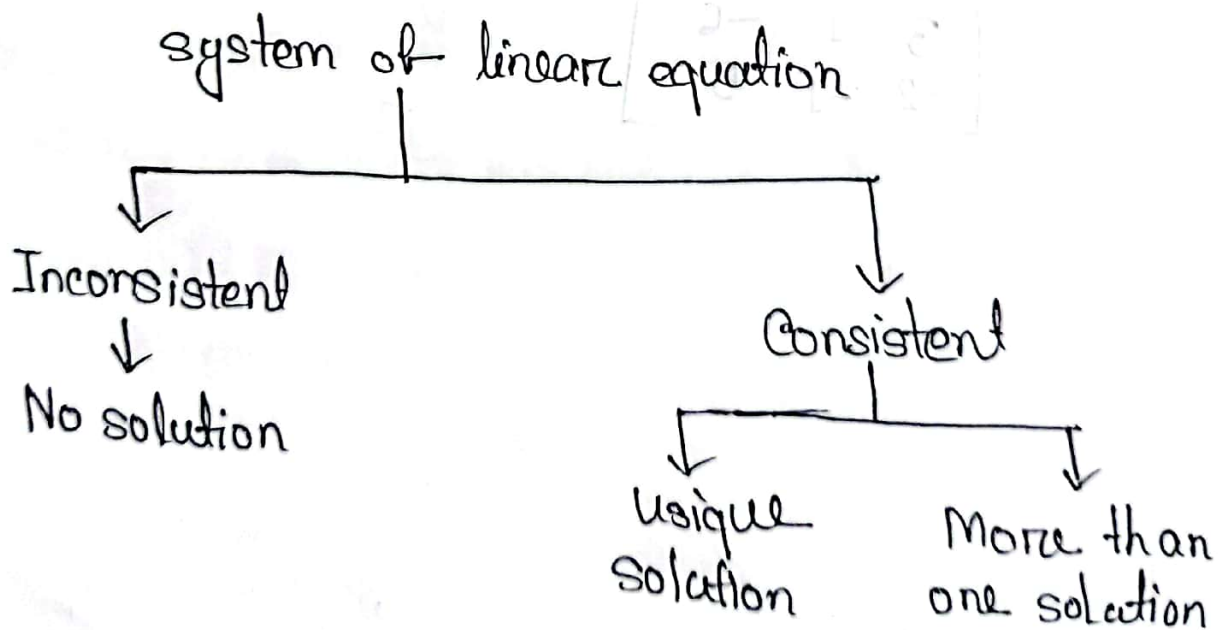 system of linear equation
Inconsistent
Consistent
No solution
Usique
solution
More than
one solution